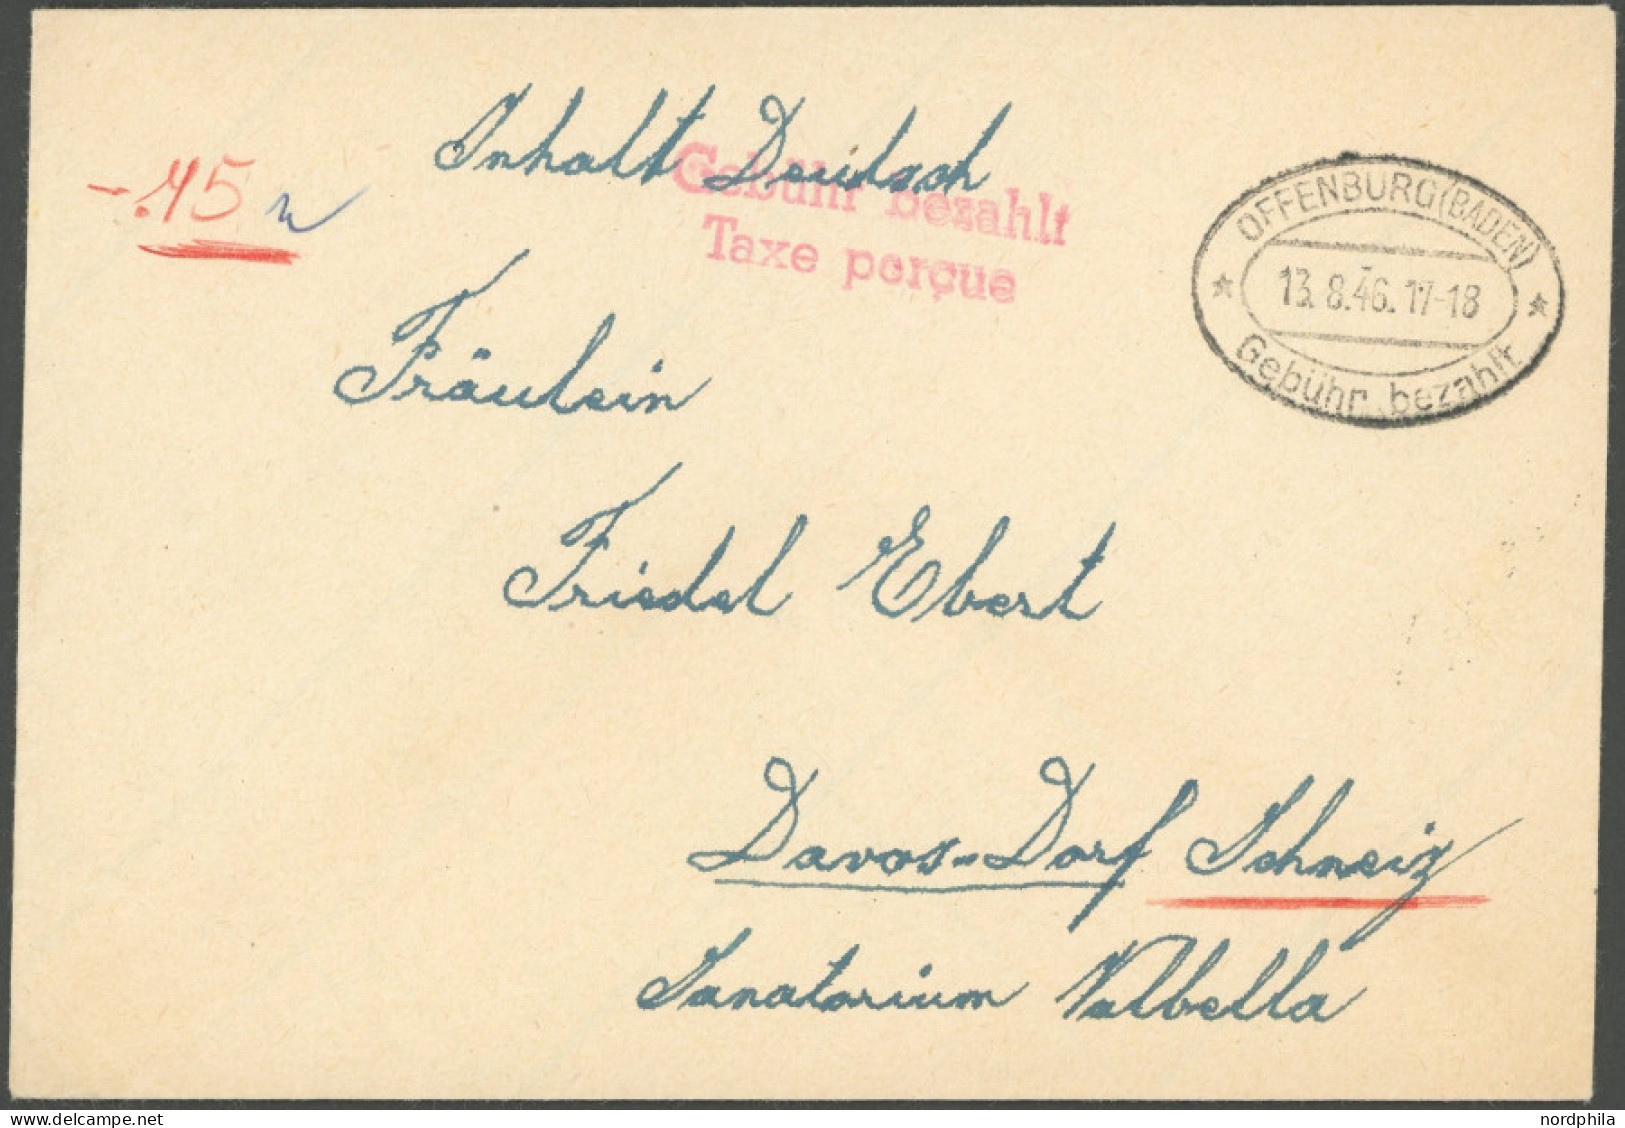 Inhalt Deutsch
-.45
Gebühr bezahlt
Taxe perçue
OFFENBURG (BADEN)
13.8.46.17-18
Gebühr bezahlt
Fräulein
Friedel Ebert
Davos-Dorf Schweiz
Sanatorium Valbella
delcampe.net
nordphila